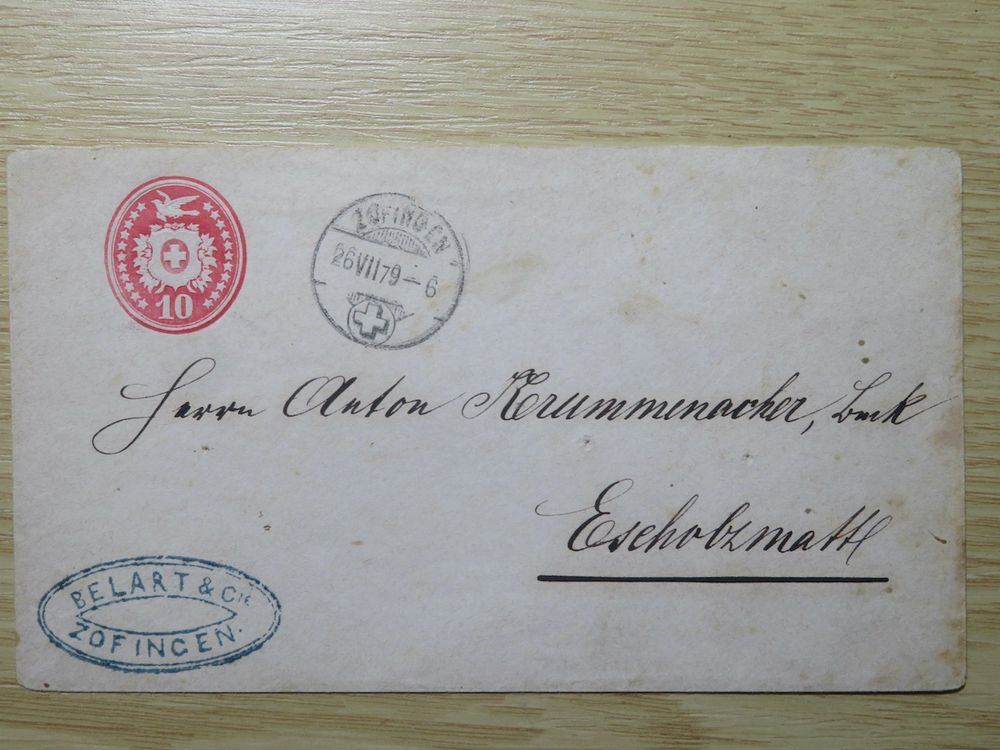 10
ZOFINGEN
26 VII 79 - 6
Herrn Anton Krummenacher, Beck
Escholzmatt
BELART & CIE
ZOFINGEN.